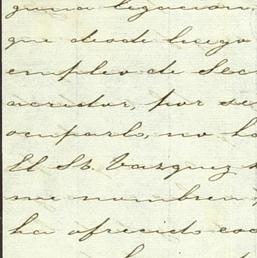 guna ligacion,
que desde luego
empleo de Sec
acredor, por se
ocuparlo, no ha
El Sr. Vazquez
me nombren,
ha ofrecido